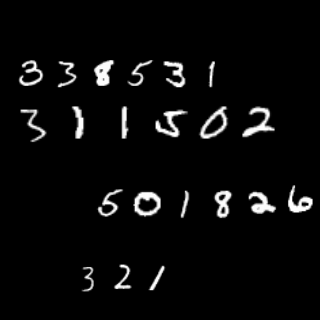 338531
311502
501826
321